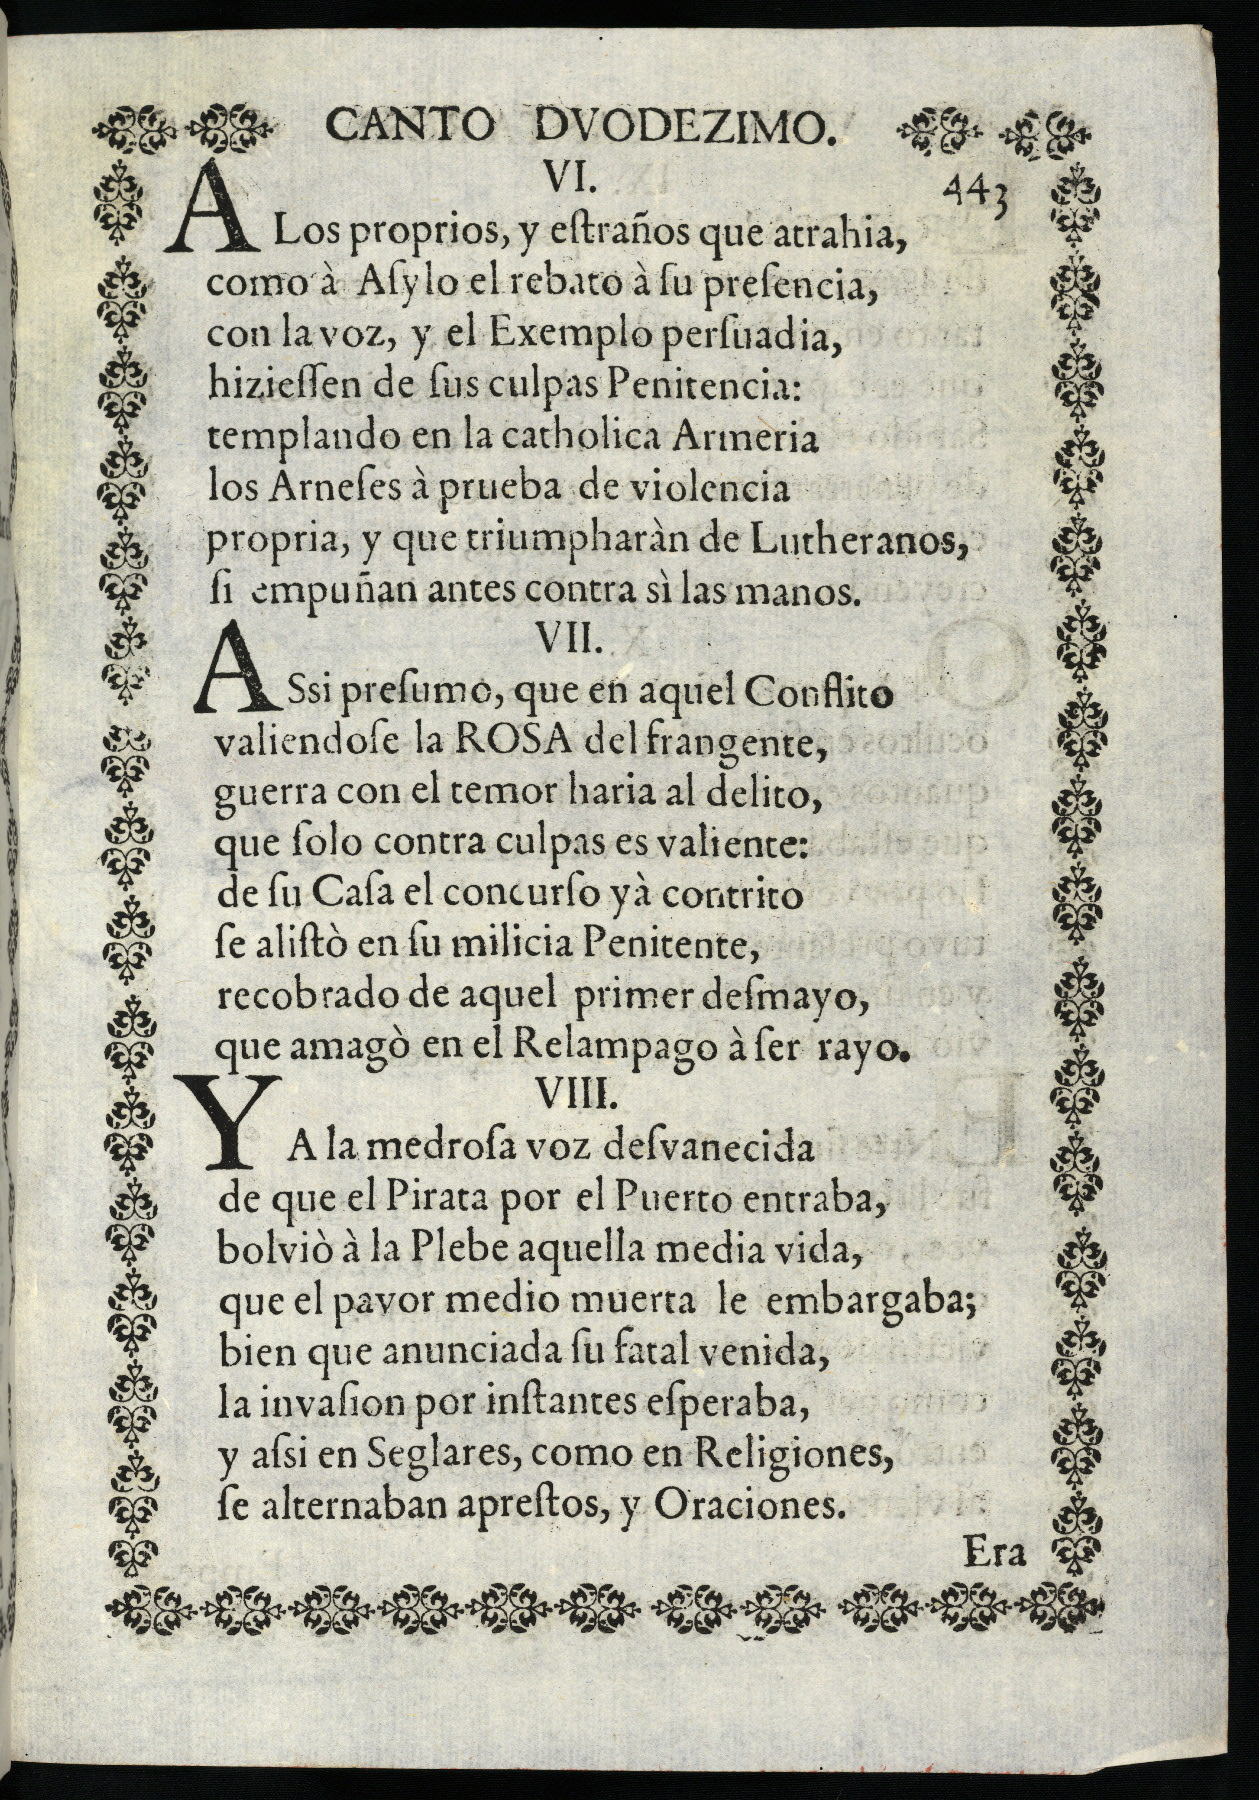 CANTO DVODEZIMO.
VI.
443
A Los proprios, y eſtraños que atrahia,
como à Aſylo el rebato à ſu preſencia,
con la voz, y el Exemplo perſuadia,
hizieſſen de ſus culpas Penitencia:
templando en la catholica Armeria
los Arneſes à prueba de violencia
propria, y que triumpharàn de Lutheranos,
ſi empuñan antes contra sì las manos.
VII.
ASsi preſumo, que en aquel Conflito
valiendoſe la ROSA del frangente,
guerra con el temor haria al delito,
que ſolo contra culpas es valiente:
de ſu Caſa el concurſo yà contrito
ſe aliſtò en ſu milicia Penitente,
recobrado de aquel primer deſmayo,
que amagò en el Relampago à ſer rayo.
VIII.
YA la medroſa voz deſvanecida
de que el Pirata por el Puerto entraba,
bolviò à la Plebe aquella media vida,
que el pavor medio muerta le embargaba;
bien que anunciada ſu fatal venida,
la invaſion por inſtantes eſperaba,
y aſsi en Seglares, como en Religiones,
ſe alternaban apreſtos, y Oraciones.
Era